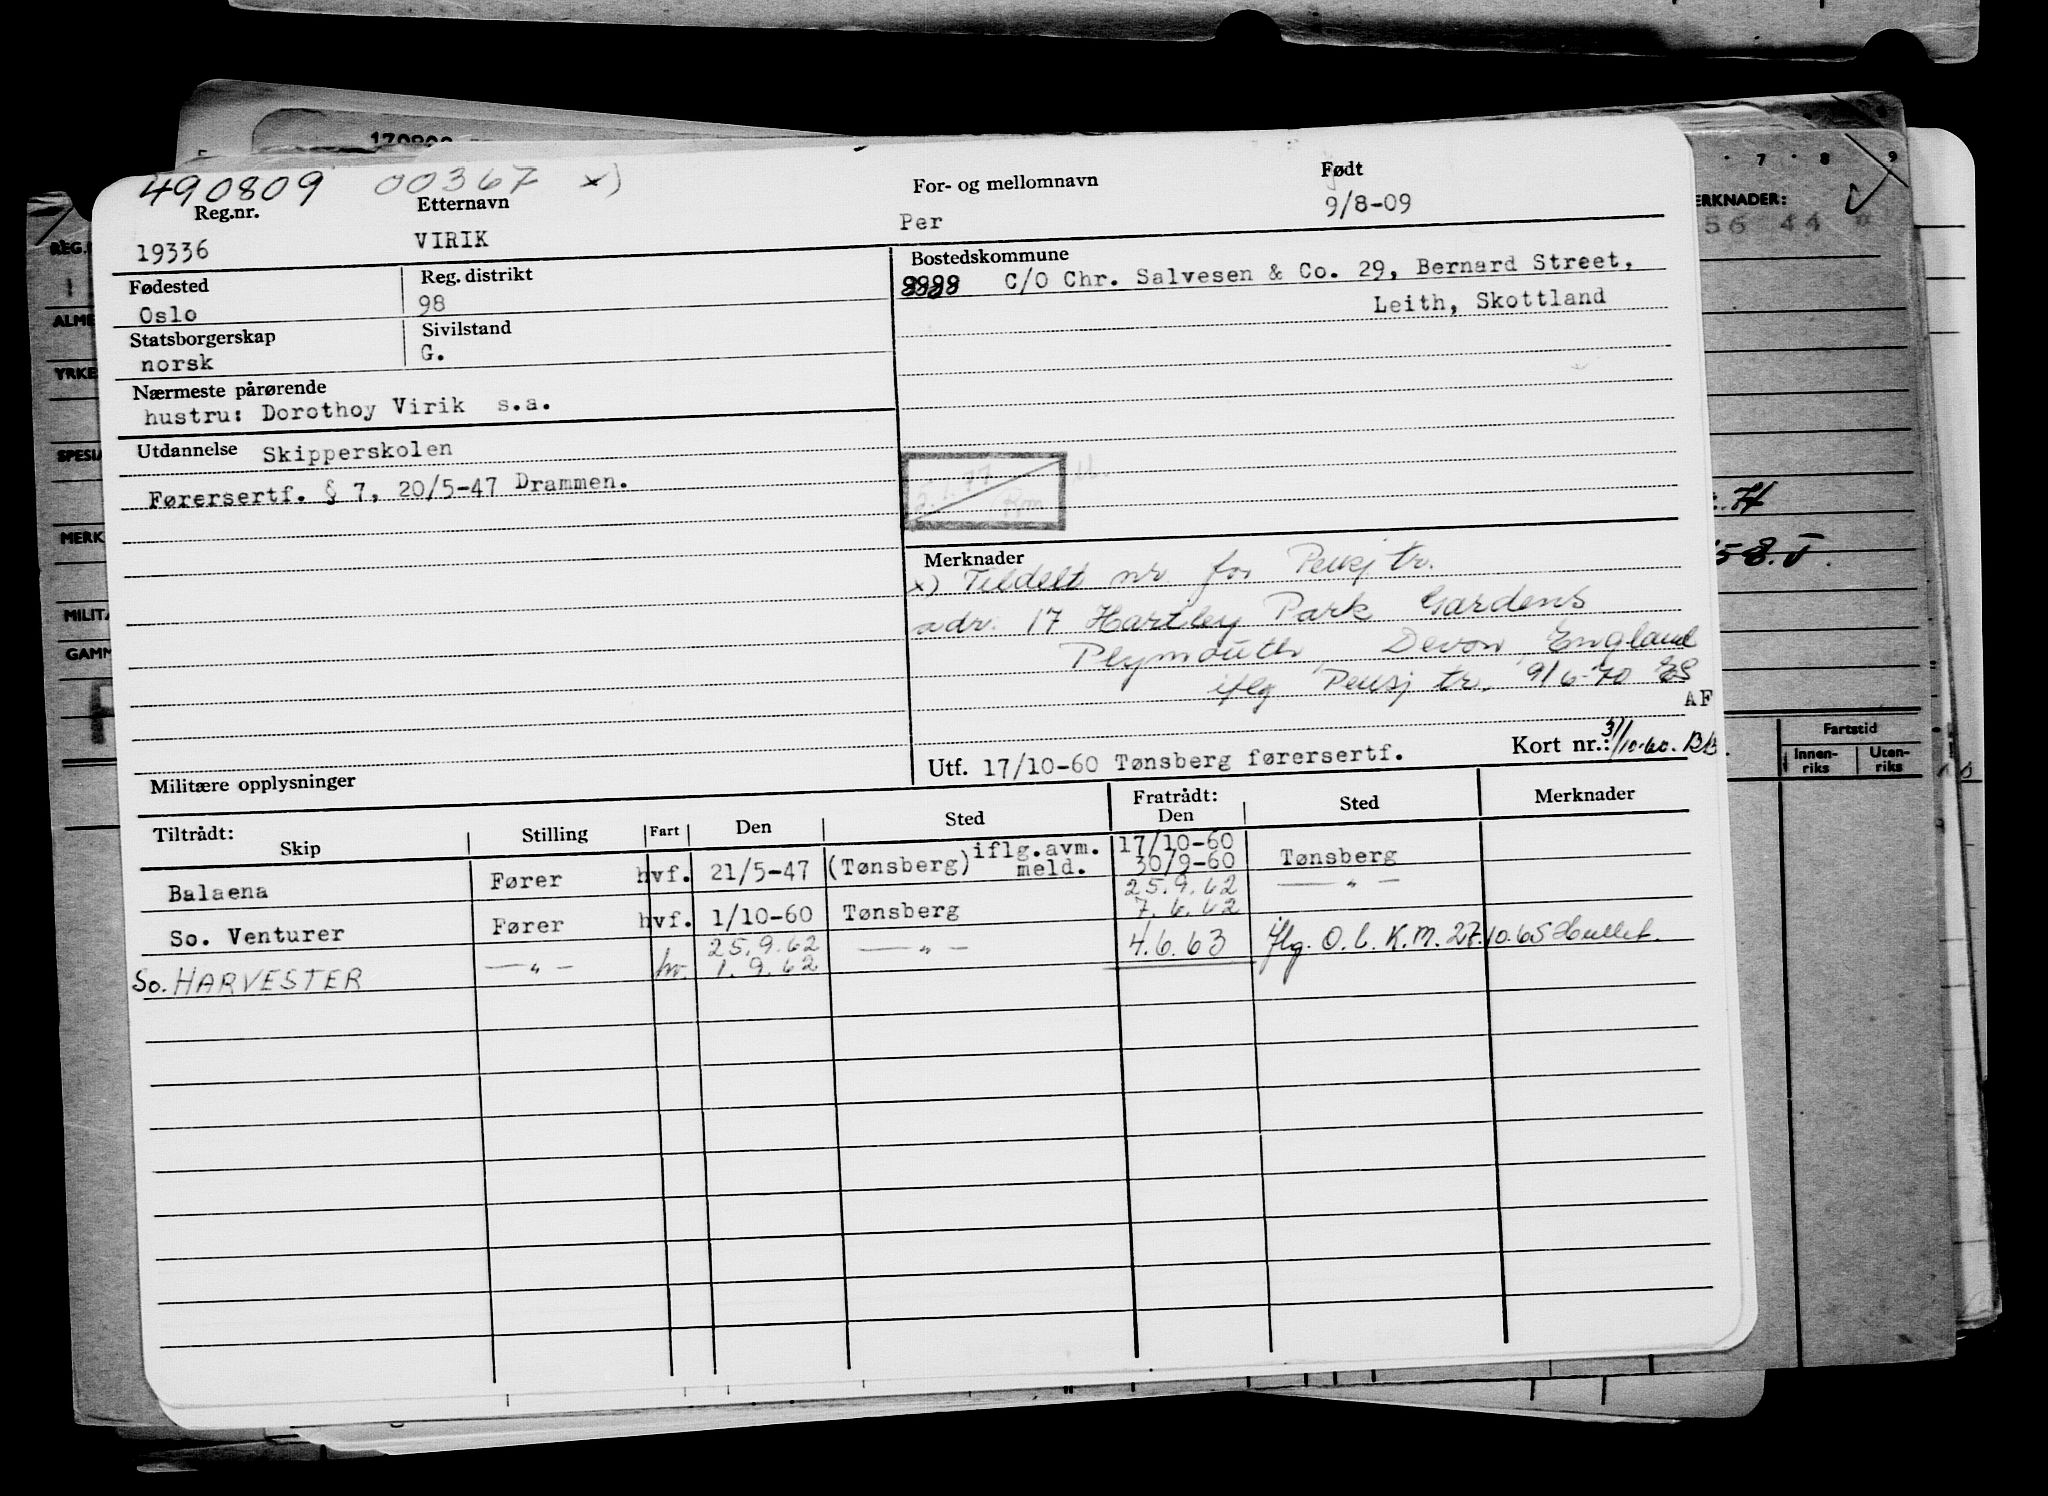 490809 00367 x)
Reg.nr. Etternavn For- og mellomnavn Født
19336 VIRIK Per 9/8-09
Fødested Reg. distrikt Bostedskommune
Oslo 98 9999 C/O Chr. Salvesen & Co. 29, Bernard Street,
Leith, Skottland
Statsborgerskap Sivilstand
norsk G.
Nærmeste pårørende
hustru: Dorothoy Virik s.a.
Utdannelse Skipperskolen
Førersertf. § 7, 20/5-47 Drammen.
Merknader
x) Tildelt nr for Pensj tr.
adr. 17 Hartley Park Gardens
Plymouth, Devon, England
iflg Pensj tr. 9/6-70 ES
AF
Utf. 17/10-60 Tønsberg førersertf. Kort nr.: 31/10-60. BB.
Militære opplysninger
Tiltrådt: Fratrådt:
Skip Stilling Fart Den Sted Den Sted Merknader
Balaena Fører hvf. 21/5-47 (Tønsberg) iflg.avm. meld. 17/10-60 30/9-60 Tønsberg
25.9.62 — " —
So. Venturer Fører hvf. 1/10-60 Tønsberg 7.6.62
So. HARVESTER — " — hv. 25.9.62 1.9.62 — " — 4.6.63 iflg. O.l. K.M. 27.10.65 Hullet.
ERKNADER:
56 44
7 8 9
REG.
ALME
YRKE
SPESIA
MERK
MILITA
GAMM
58.
Fartstid
Innen-riks Uten-riks